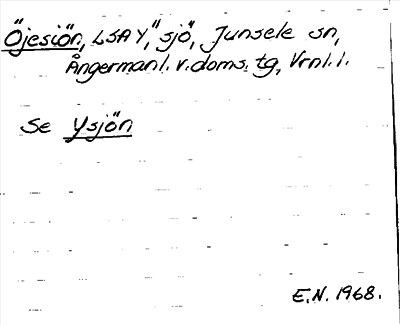 Öjesjön, LSA Y, "sjö", Junsele sn,
Ångermanl. v. doms. tg, Vrnl. l.
Se Ysjön
E.N. 1968.